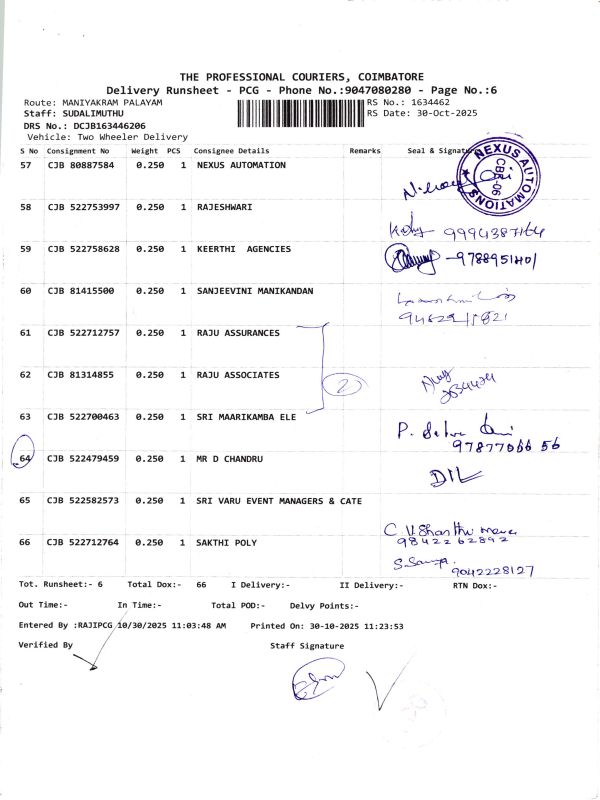 THE PROFESSIONAL COURIERS, COIMBATORE
Delivery Runsheet - PCG - Phone No.:9047080280 - Page No.:6
Route: MANIYAKRAM PALAYAM RS No.: 1634462
Staff: SUDALIMUTHU RS Date: 30-Oct-2025
DRS No.: DCJB163446206
Vehicle: Two Wheeler Delivery
S No Consignment No Weight PCS Consignee Details Remarks Seal & Signature
57 CJB 80887584 0.250 1 NEXUS AUTOMATION
NEXUS AUTOMATIONS
CBE-06
58 CJB 522753997 0.250 1 RAJESHWARI
9994387164
59 CJB 522758628 0.250 1 KEERTHI AGENCIES
60 CJB 81415500 0.250 1 SANJEEVINI MANIKANDAN
61 CJB 522712757 0.250 1 RAJU ASSURANCES
62 CJB 81314855 0.250 1 RAJU ASSOCIATES
2
63 CJB 522700463 0.250 1 SRI MAARIKAMBA ELE
P.
64 CJB 522479459 0.250 1 MR D CHANDRU
65 CJB 522582573 0.250 1 SRI VARU EVENT MANAGERS & CATE
66 CJB 522712764 0.250 1 SAKTHI POLY
9842262892
9042228127
Tot. Runsheet:- 6 Total Dox:- 66 I Delivery:- II Delivery:- RTN Dox:-
Out Time:- In Time:- Total POD:- Delvy Points:-
Entered By :RAJIPCG 10/30/2025 11:03:48 AM Printed On: 30-10-2025 11:23:53
Verified By Staff Signature